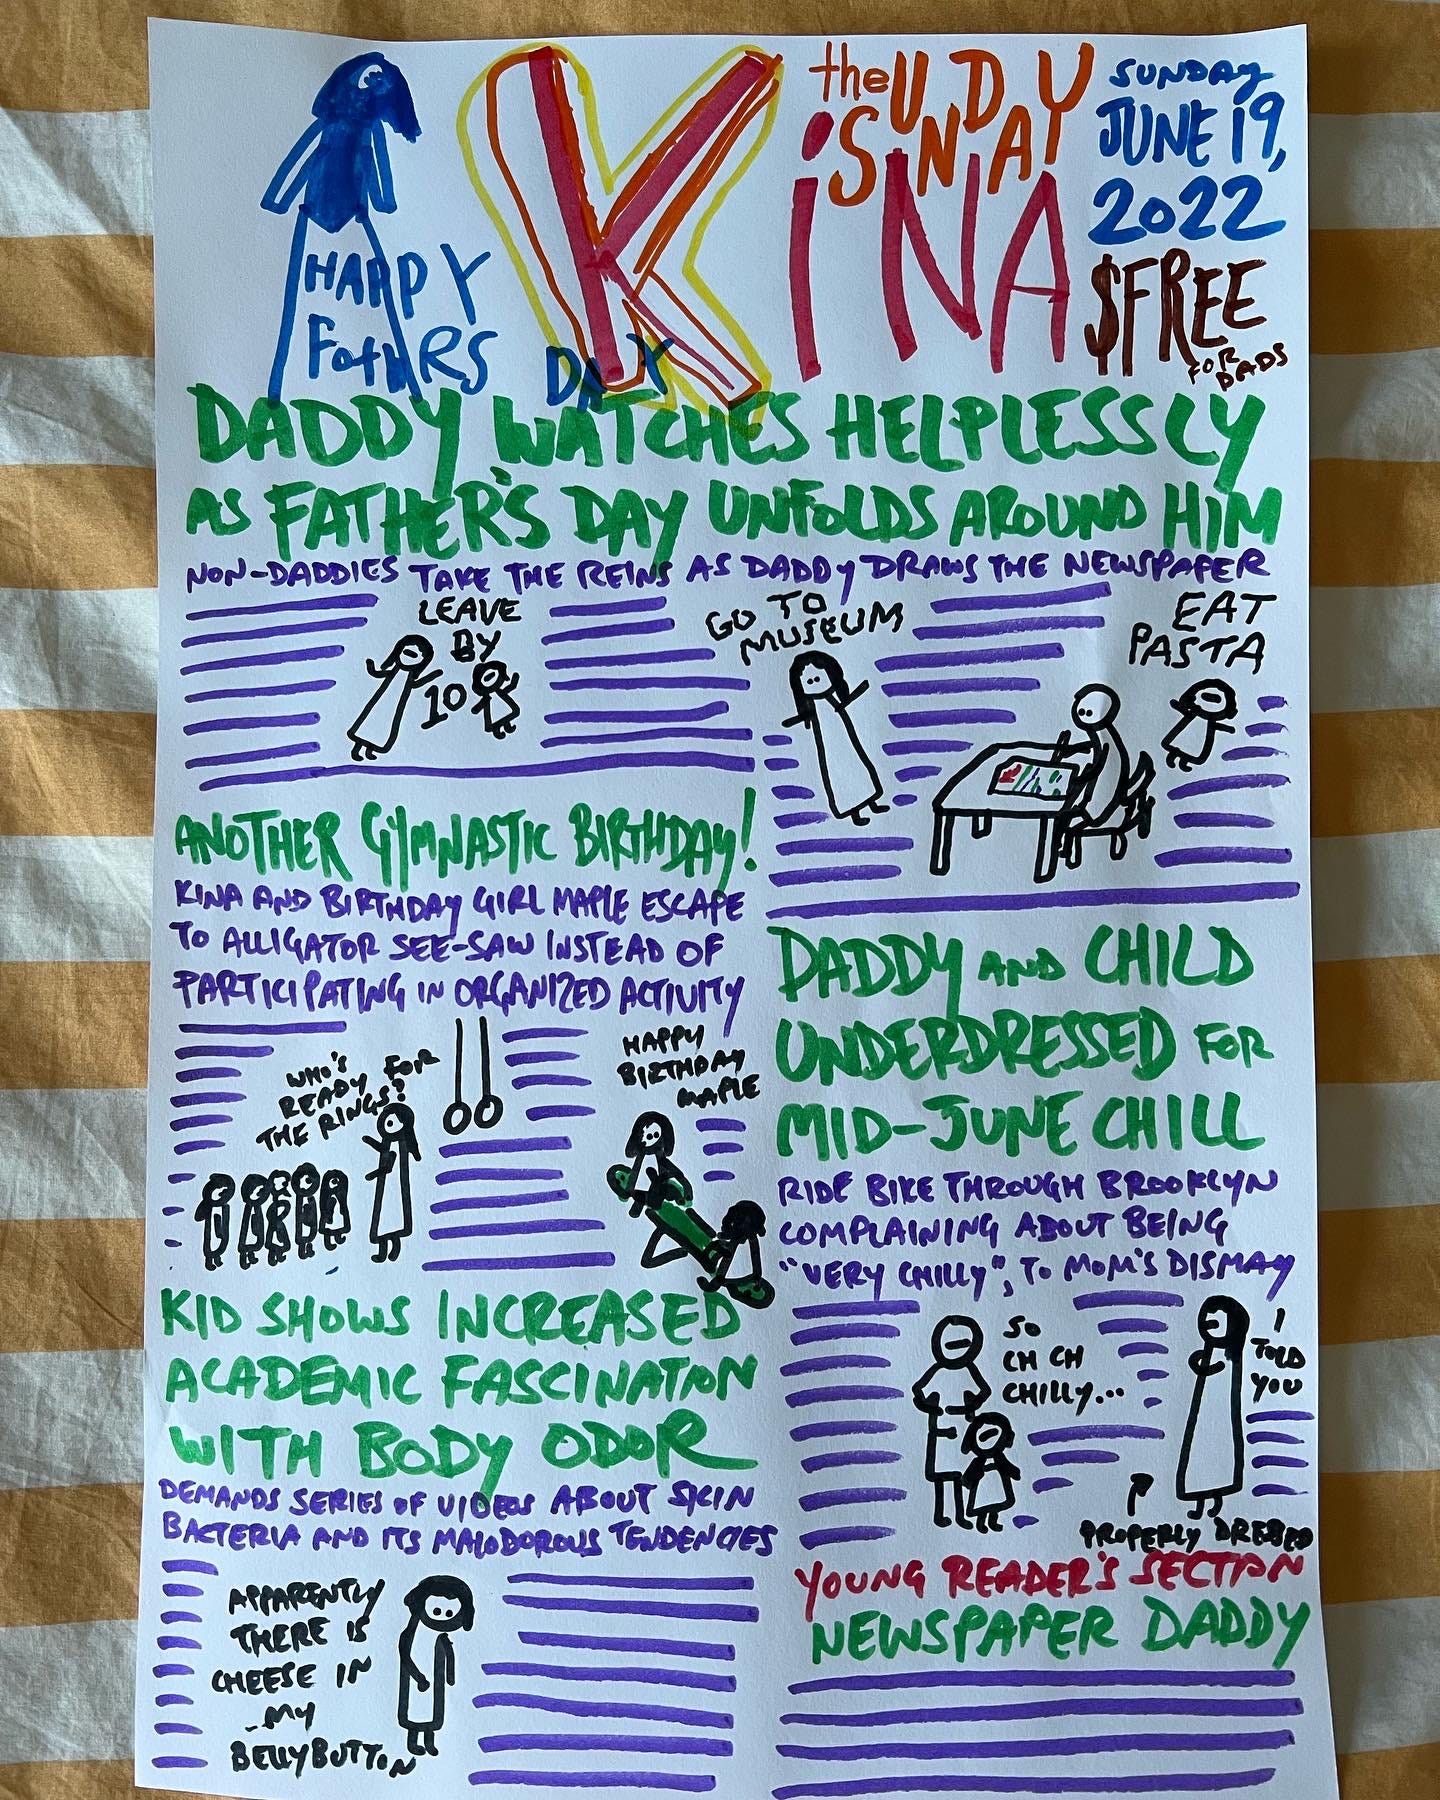 HAPPY
FathRS DAY
K
the SUNDAY
iNA
SUNDAY
JUNE 19,
2022
$FREE
FOR
DADS
DADDY WATCHES HELPLESSLY
AS FATHER'S DAY UNFOLDS AROUND HIM
NON-DADDIES TAKE THE REINS AS DADDY DRAWS THE NEWSPAPER
LEAVE
BY
10
GO TO
MUSEUM
EAT
PASTA
ANOTHER GYMNASTIC BIRTHDAY!
KINA AND BIRTHDAY GIRL MAPLE ESCAPE
TO ALLIGATOR SEE-SAW INSTEAD OF
PARTICIPATING IN ORGANIZED ACTIVITY
WHO'S
READY FOR
THE RINGS?
HAPPY
BIRTHDAY
MAPLE
DADDY AND CHILD
UNDERDRESSED FOR
MID-JUNE CHILL
RIDE BIKE THROUGH BROOKLYN
COMPLAINING ABOUT BEING
"VERY CHILLY", TO MOM'S DISMAY
SO
CH CH
CHILLY...
I
TOLD
YOU
PROPERLY DRESSED
KID SHOWS INCREASED
ACADEMIC FASCINATION
WITH BODY ODOR
DEMANDS SERIES OF VIDEOS ABOUT SKIN
BACTERIA AND ITS MALODOROUS TENDENCIES
APPARENTLY
THERE IS
CHEESE IN
MY
BELLYBUTTON
YOUNG READER'S SECTION
NEWSPAPER DADDY